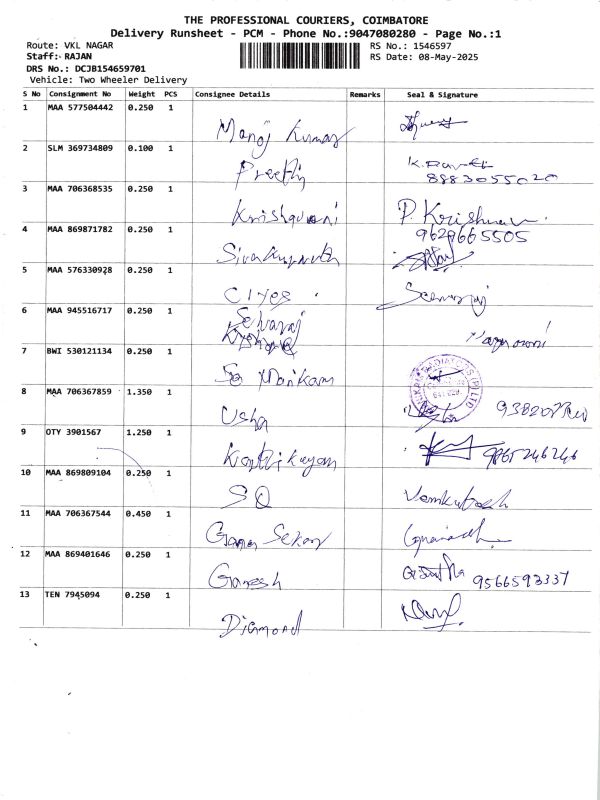 THE PROFESSIONAL COURIERS, COIMBATORE
Delivery Runsheet - PCM - Phone No.:9047080280 - Page No.:1
Route: VKL NAGAR
RS No.: 1546597
Staff: RAJAN
RS Date: 08-May-2025
DRS No.: DCJB154659701
Vehicle: Two Wheeler Delivery
S No Consignment No Weight PCS Consignee Details Remarks Seal & Signature
1 MAA 577504442 0.250 1
Manoj Kumar
2 SLM 369734809 0.100 1
Preethi
8883055020
3 MAA 706368535 0.250 1
Krishnaveni P. Krishnaveni
4 MAA 869871782 0.250 1
9629665505
5 MAA 576330928 0.250 1
6 MAA 945516717 0.250 1
Selvaraj
7 BWI 530121134 0.250 1
Manikam
8 MAA 706367859 1.350 1
Usha
9 OTY 3901567 1.250 1
Karthikeyan 9865246246
10 MAA 869809104 0.250 1
SQ Venkatesh
11 MAA 706367544 0.450 1
Gana Sekar
12 MAA 869401646 0.250 1
Ganesh 9566593337
13 TEN 7945094 0.250 1
Diamond